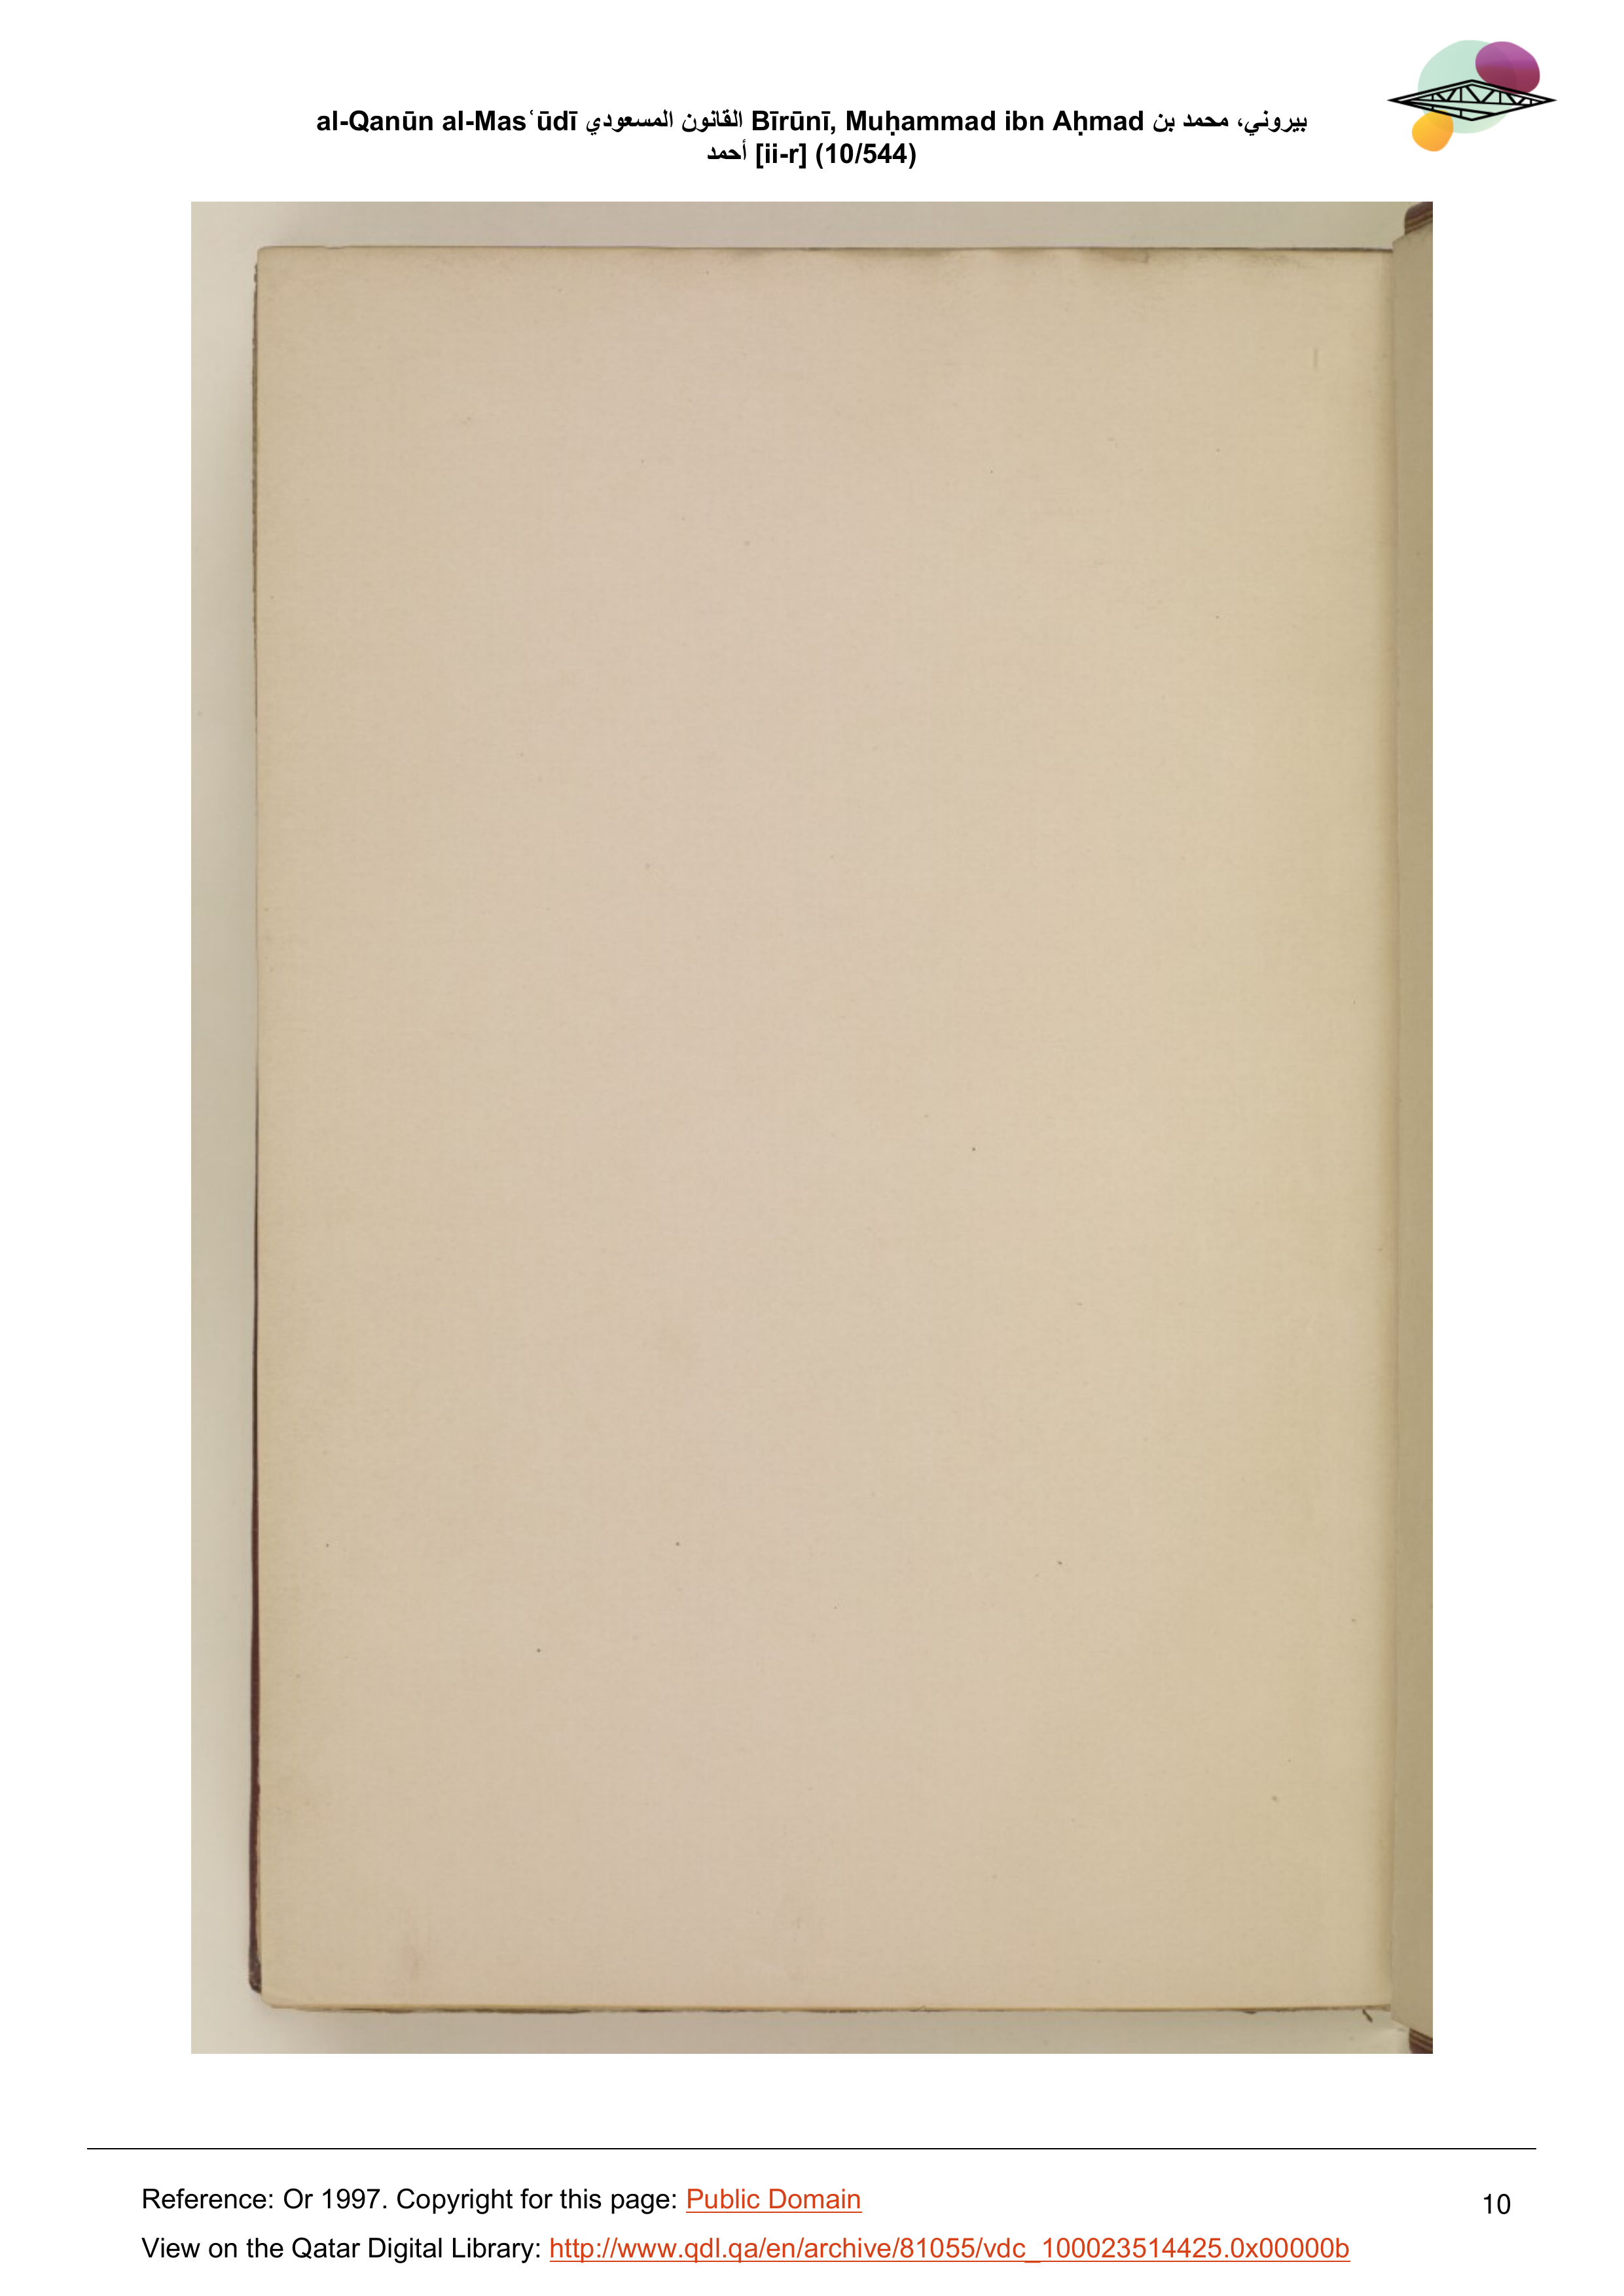 al-Qanūn al-Masʿūdī القانون المسعودي Bīrūnī, Muḥammad ibn Aḥmad بيروني، محمد بن
أحمد [ii-r] (10/544)
Reference: Or 1997. Copyright for this page: Public Domain
10
View on the Qatar Digital Library: http://www.qdl.qa/en/archive/81055/vdc_100023514425.0x00000b